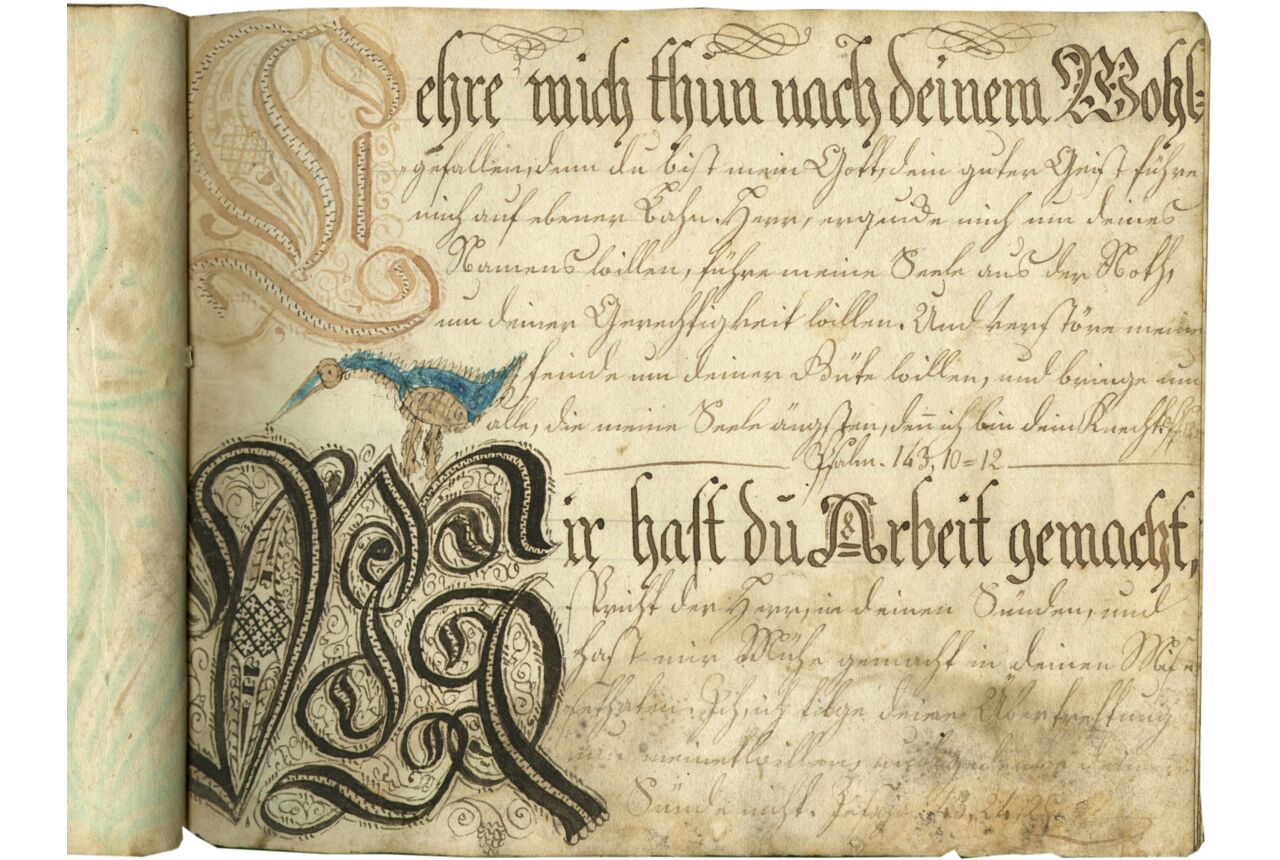 Lehre mich thun nach deinem Wohl-
gefallen, denn du bist mein Gott, dein guter Geist führe
mich auf ebener Bahn. Herr, erquicke mich um deines
Namens willen, führe meine Seele aus der Noth,
um deiner Gerechtigkeit willen. Und verstöre meine
feinde um deiner Güte willen, und bringe um
alle, die meine Seele ängsten, deñ ich bin dein Knecht.
Psalm. 143, 10=12
Mir hast du Arbeit gemacht,
spricht der Herr, in deinen Sünden, und
hast mir Mühe gemacht in deinen Mis-
sethaten. Ich, ich tilge deine Übertrettung
um meinetwillen, und gedenke deiner
Sünde nicht. Jesaj. 43, 24, 25